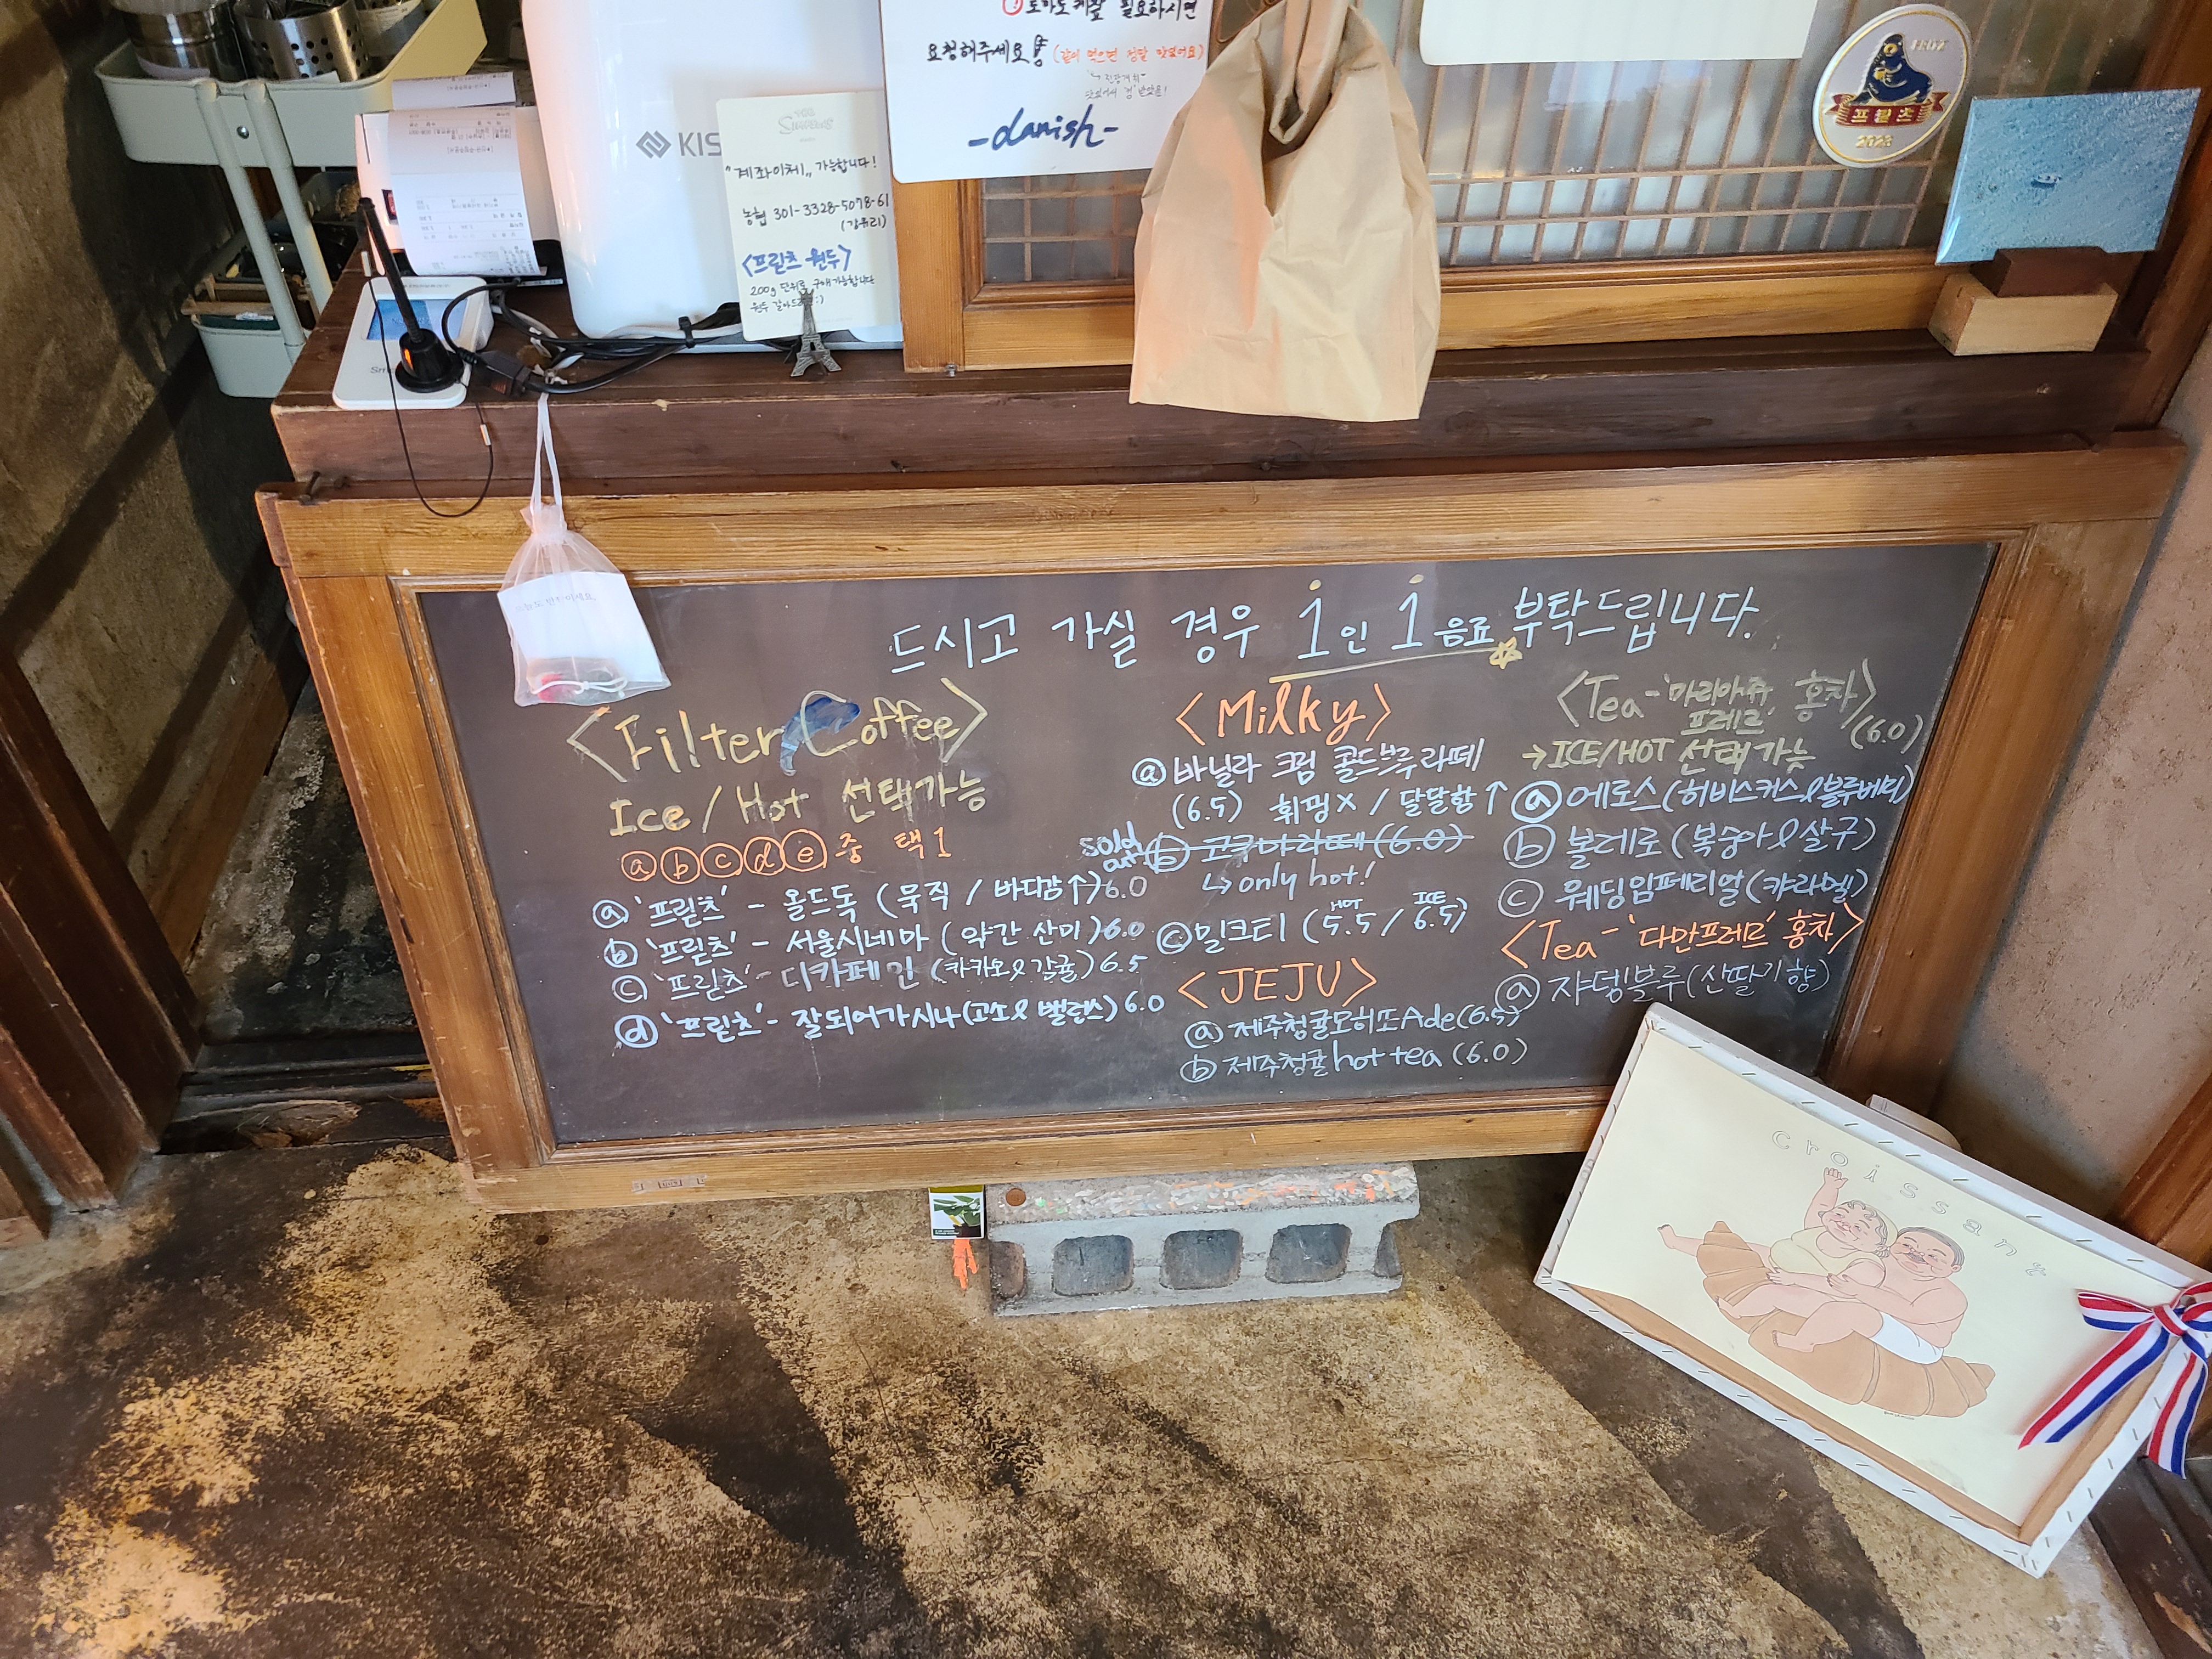 토마토케찹 필요하시면
요청해주세요
(같이 먹으면 정말 맛있어요)
-danish-
KIS
THE
SIMPSONS
"계좌이체" 가능합니다!
농협 301-3328-5078-61
(강유리)
<프릳츠 원두>
200g 단위로 구매가능합니다
원두 갈아드
FRITZ
프릳츠
2023
드시고 가실 경우 1인 1음료 부탁드립니다.
<Filter Coffee>
Ice / Hot 선택가능
ⓐⓑⓒⓓⓔ 중 택1
ⓐ '프릳츠' - 올드독 (묵직 / 바디감↑) 6.0
ⓑ '프릳츠' - 서울시네마 (약간 산미) 6.0
ⓒ '프릳츠' - 디카페인 (카카오&감귤) 6.5
ⓓ '프릳츠' - 잘되어가시나 (고소& 밸런스) 6.0
<Milky>
ⓐ 바닐라 크림 콜드브루 라떼
(6.5) 휘핑X / 달달함↑
sold out ⓑ 코쿠마라떼 (6.0)
↳ only hot!
HOT ICE
ⓒ 밀크티 (5.5 / 6.5)
<JEJU>
ⓐ 제주청귤모히또Ade (6.5)
ⓑ 제주청귤 hot tea (6.0)
<Tea - '마리아쥬 프레르' 홍차> (6.0)
→ ICE/HOT 선택 가능
ⓐ 에로스 (히비스커스&블루베리)
ⓑ 볼레로 (복숭아&살구)
ⓒ 웨딩임페리얼 (캬라멜)
<Tea - '다만프레르' 홍차>
ⓐ 쟈뎅블루 (산딸기향)
croissant